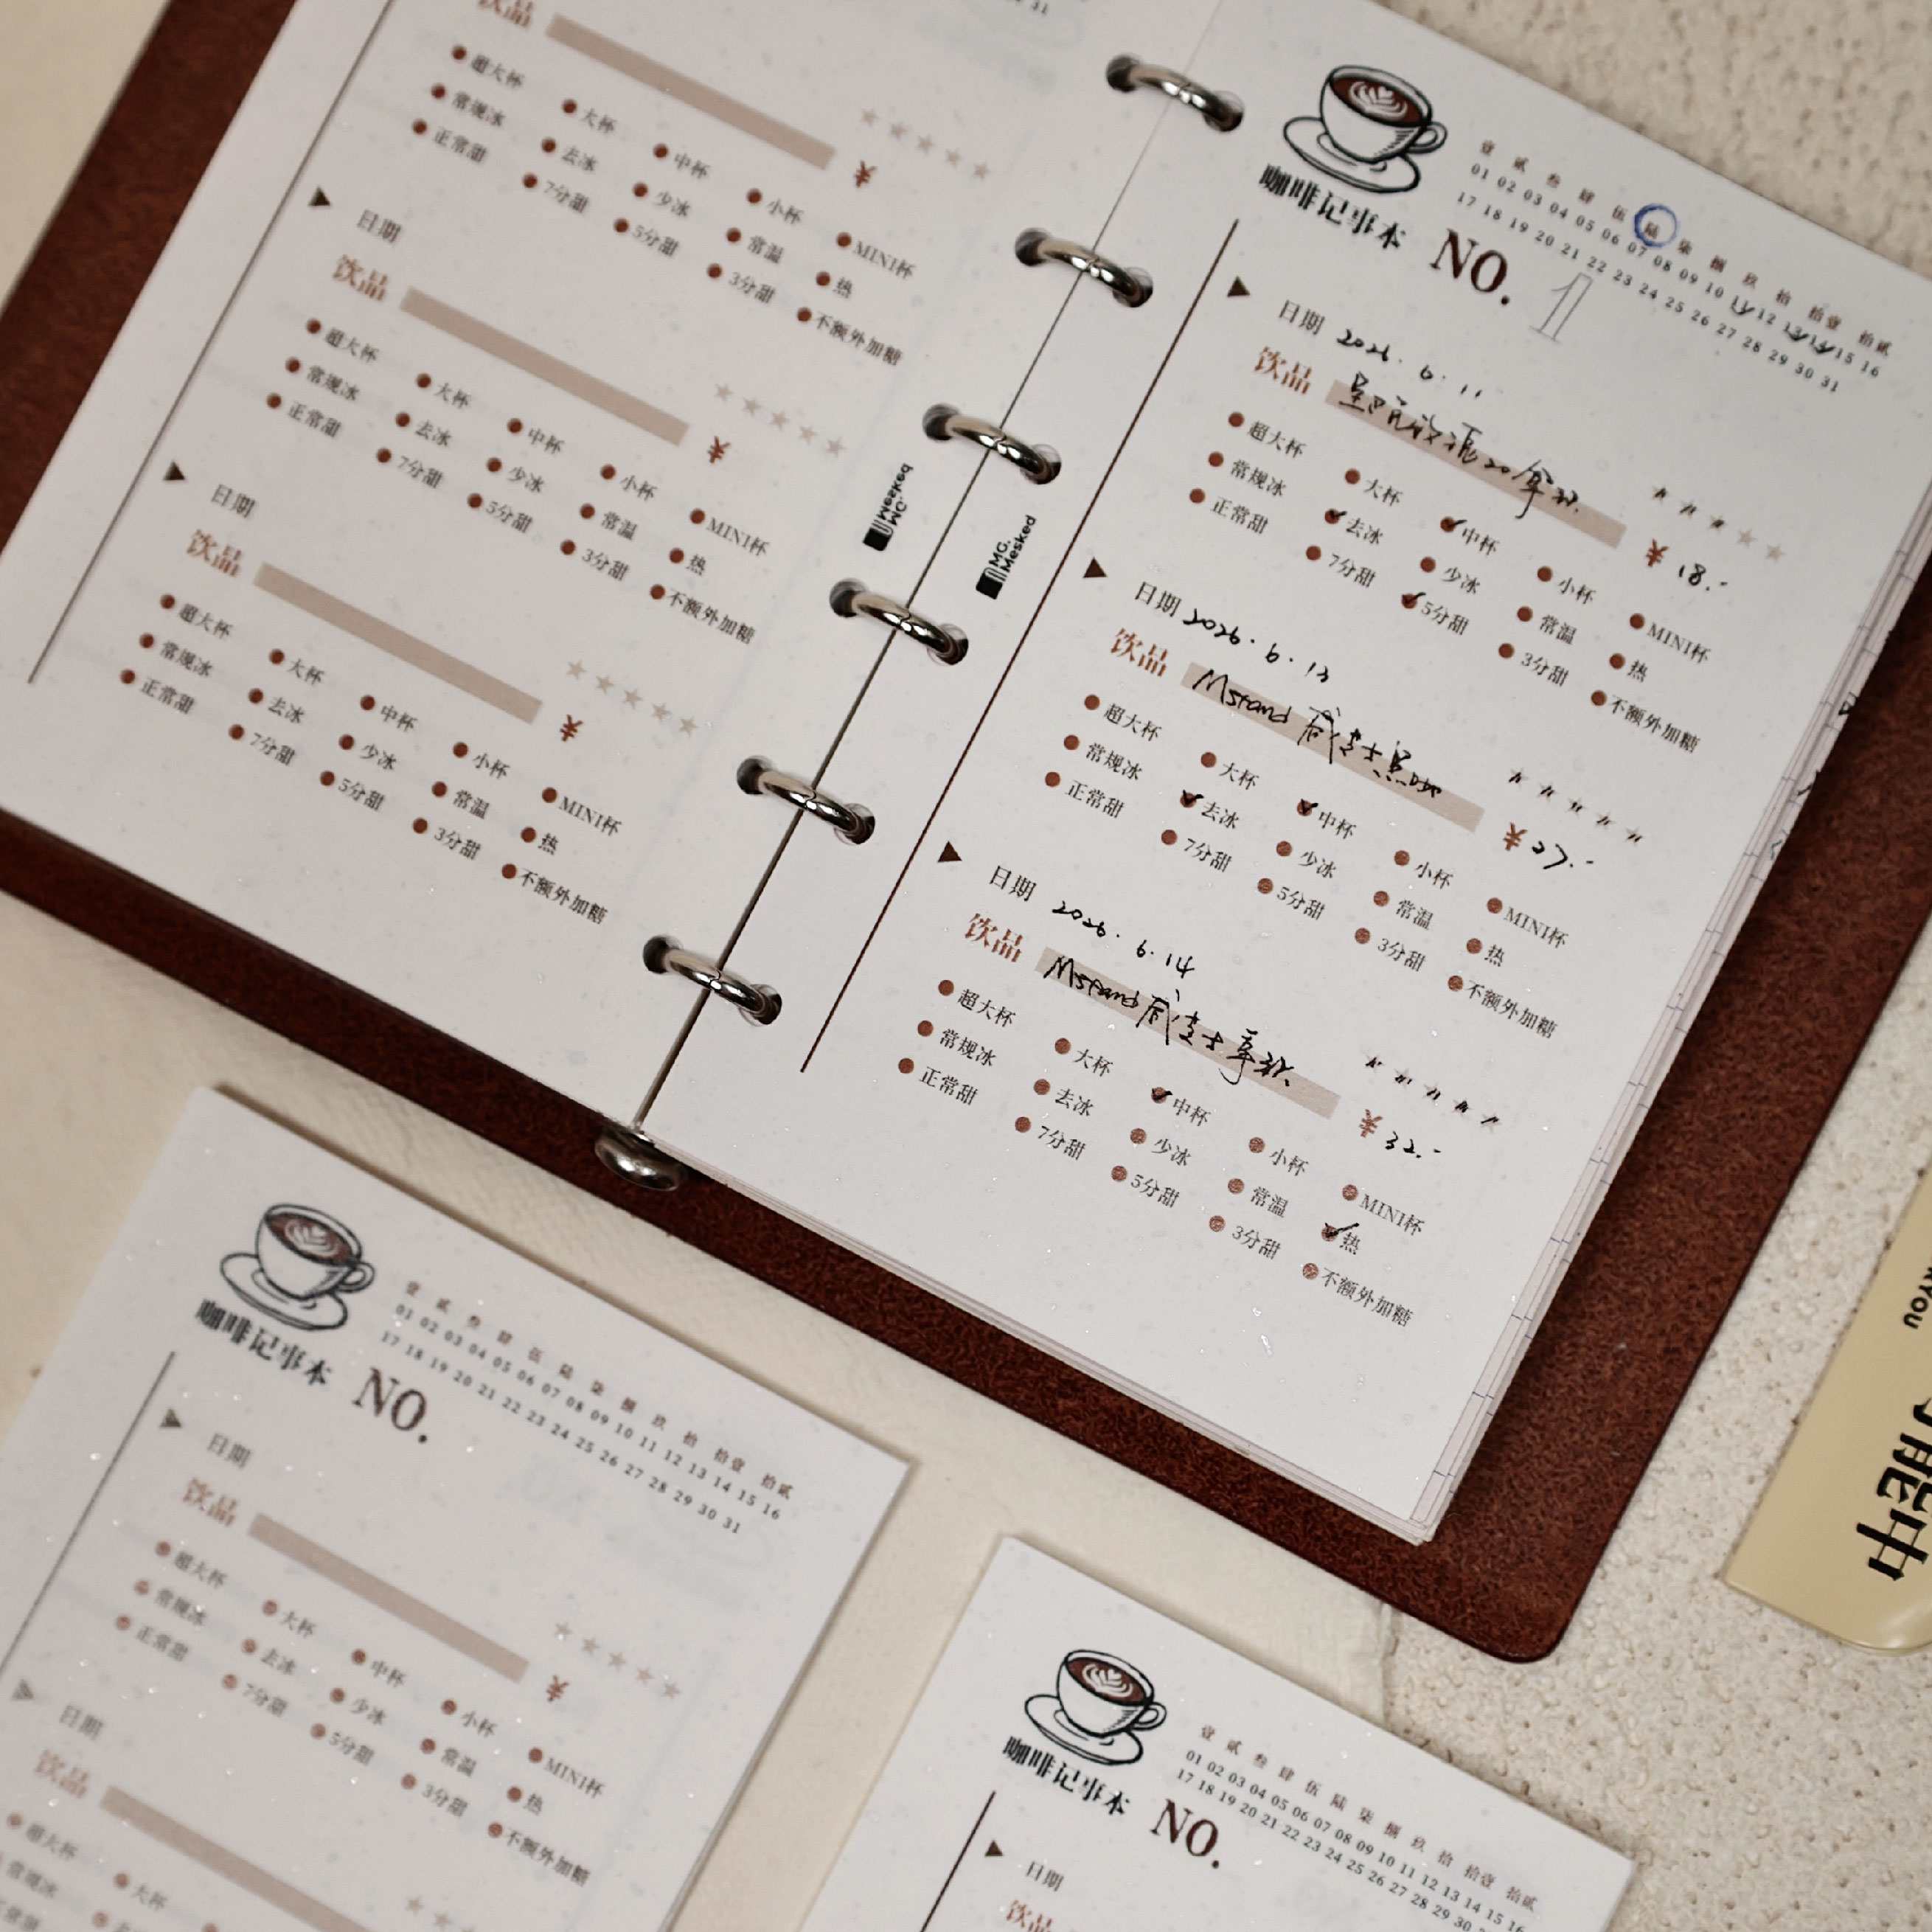 31
饮品
超大杯 大杯 中杯 小杯 MINI杯
常规冰 去冰 少冰 常温 热
正常甜 7分甜 5分甜 3分甜 不额外加糖
¥
日期
饮品
超大杯 大杯 中杯 小杯 MINI杯
常规冰 去冰 少冰 常温 热
正常甜 7分甜 5分甜 3分甜 不额外加糖
¥
日期
饮品
超大杯 大杯 中杯 小杯 MINI杯
常规冰 去冰 少冰 常温 热
正常甜 7分甜 5分甜 3分甜 不额外加糖
¥
MG.
Mesked
MG.
Mesked
咖啡记事本
NO. 1
壹 贰 叁 肆 伍 陆 柒 捌 玖 拾 拾壹 拾贰
01 02 03 04 05 06 07 08 09 10 11 12 13 14 15 16
17 18 19 20 21 22 23 24 25 26 27 28 29 30 31
日期 2026.6.11
饮品
¥ 18.-
超大杯 大杯 中杯 小杯 MINI杯
常规冰 去冰 少冰 常温 热
正常甜 7分甜 5分甜 3分甜 不额外加糖
日期 2026.6.13
饮品 Mstand 咸芝士黑咖
¥ 27.-
超大杯 大杯 中杯 小杯 MINI杯
常规冰 去冰 少冰 常温 热
正常甜 7分甜 5分甜 3分甜 不额外加糖
日期 2026.6.14
饮品 Mstand 咸芝士拿铁
¥ 32.-
超大杯 大杯 中杯 小杯 MINI杯
常规冰 去冰 少冰 常温 热
正常甜 7分甜 5分甜 3分甜 不额外加糖
咖啡记事本
NO.
壹 贰 叁 肆 伍 陆 柒 捌 玖 拾 拾壹 拾贰
01 02 03 04 05 06 07 08 09 10 11 12 13 14 15 16
17 18 19 20 21 22 23 24 25 26 27 28 29 30 31
日期
饮品
¥
超大杯 大杯 中杯 小杯 MINI杯
常规冰 去冰 少冰 常温 热
正常甜 7分甜 5分甜 3分甜 不额外加糖
日期
饮品
超大杯 大杯
常规冰
咖啡记事本
NO.
壹 贰 叁 肆 伍 陆 柒 捌 玖 拾 拾壹 拾贰
01 02 03 04 05 06 07 08 09 10 11 12 13 14 15 16
17 18 19 20 21 22 23 24 25 26 27 28 29 30
日期
饮品
YOU
能中